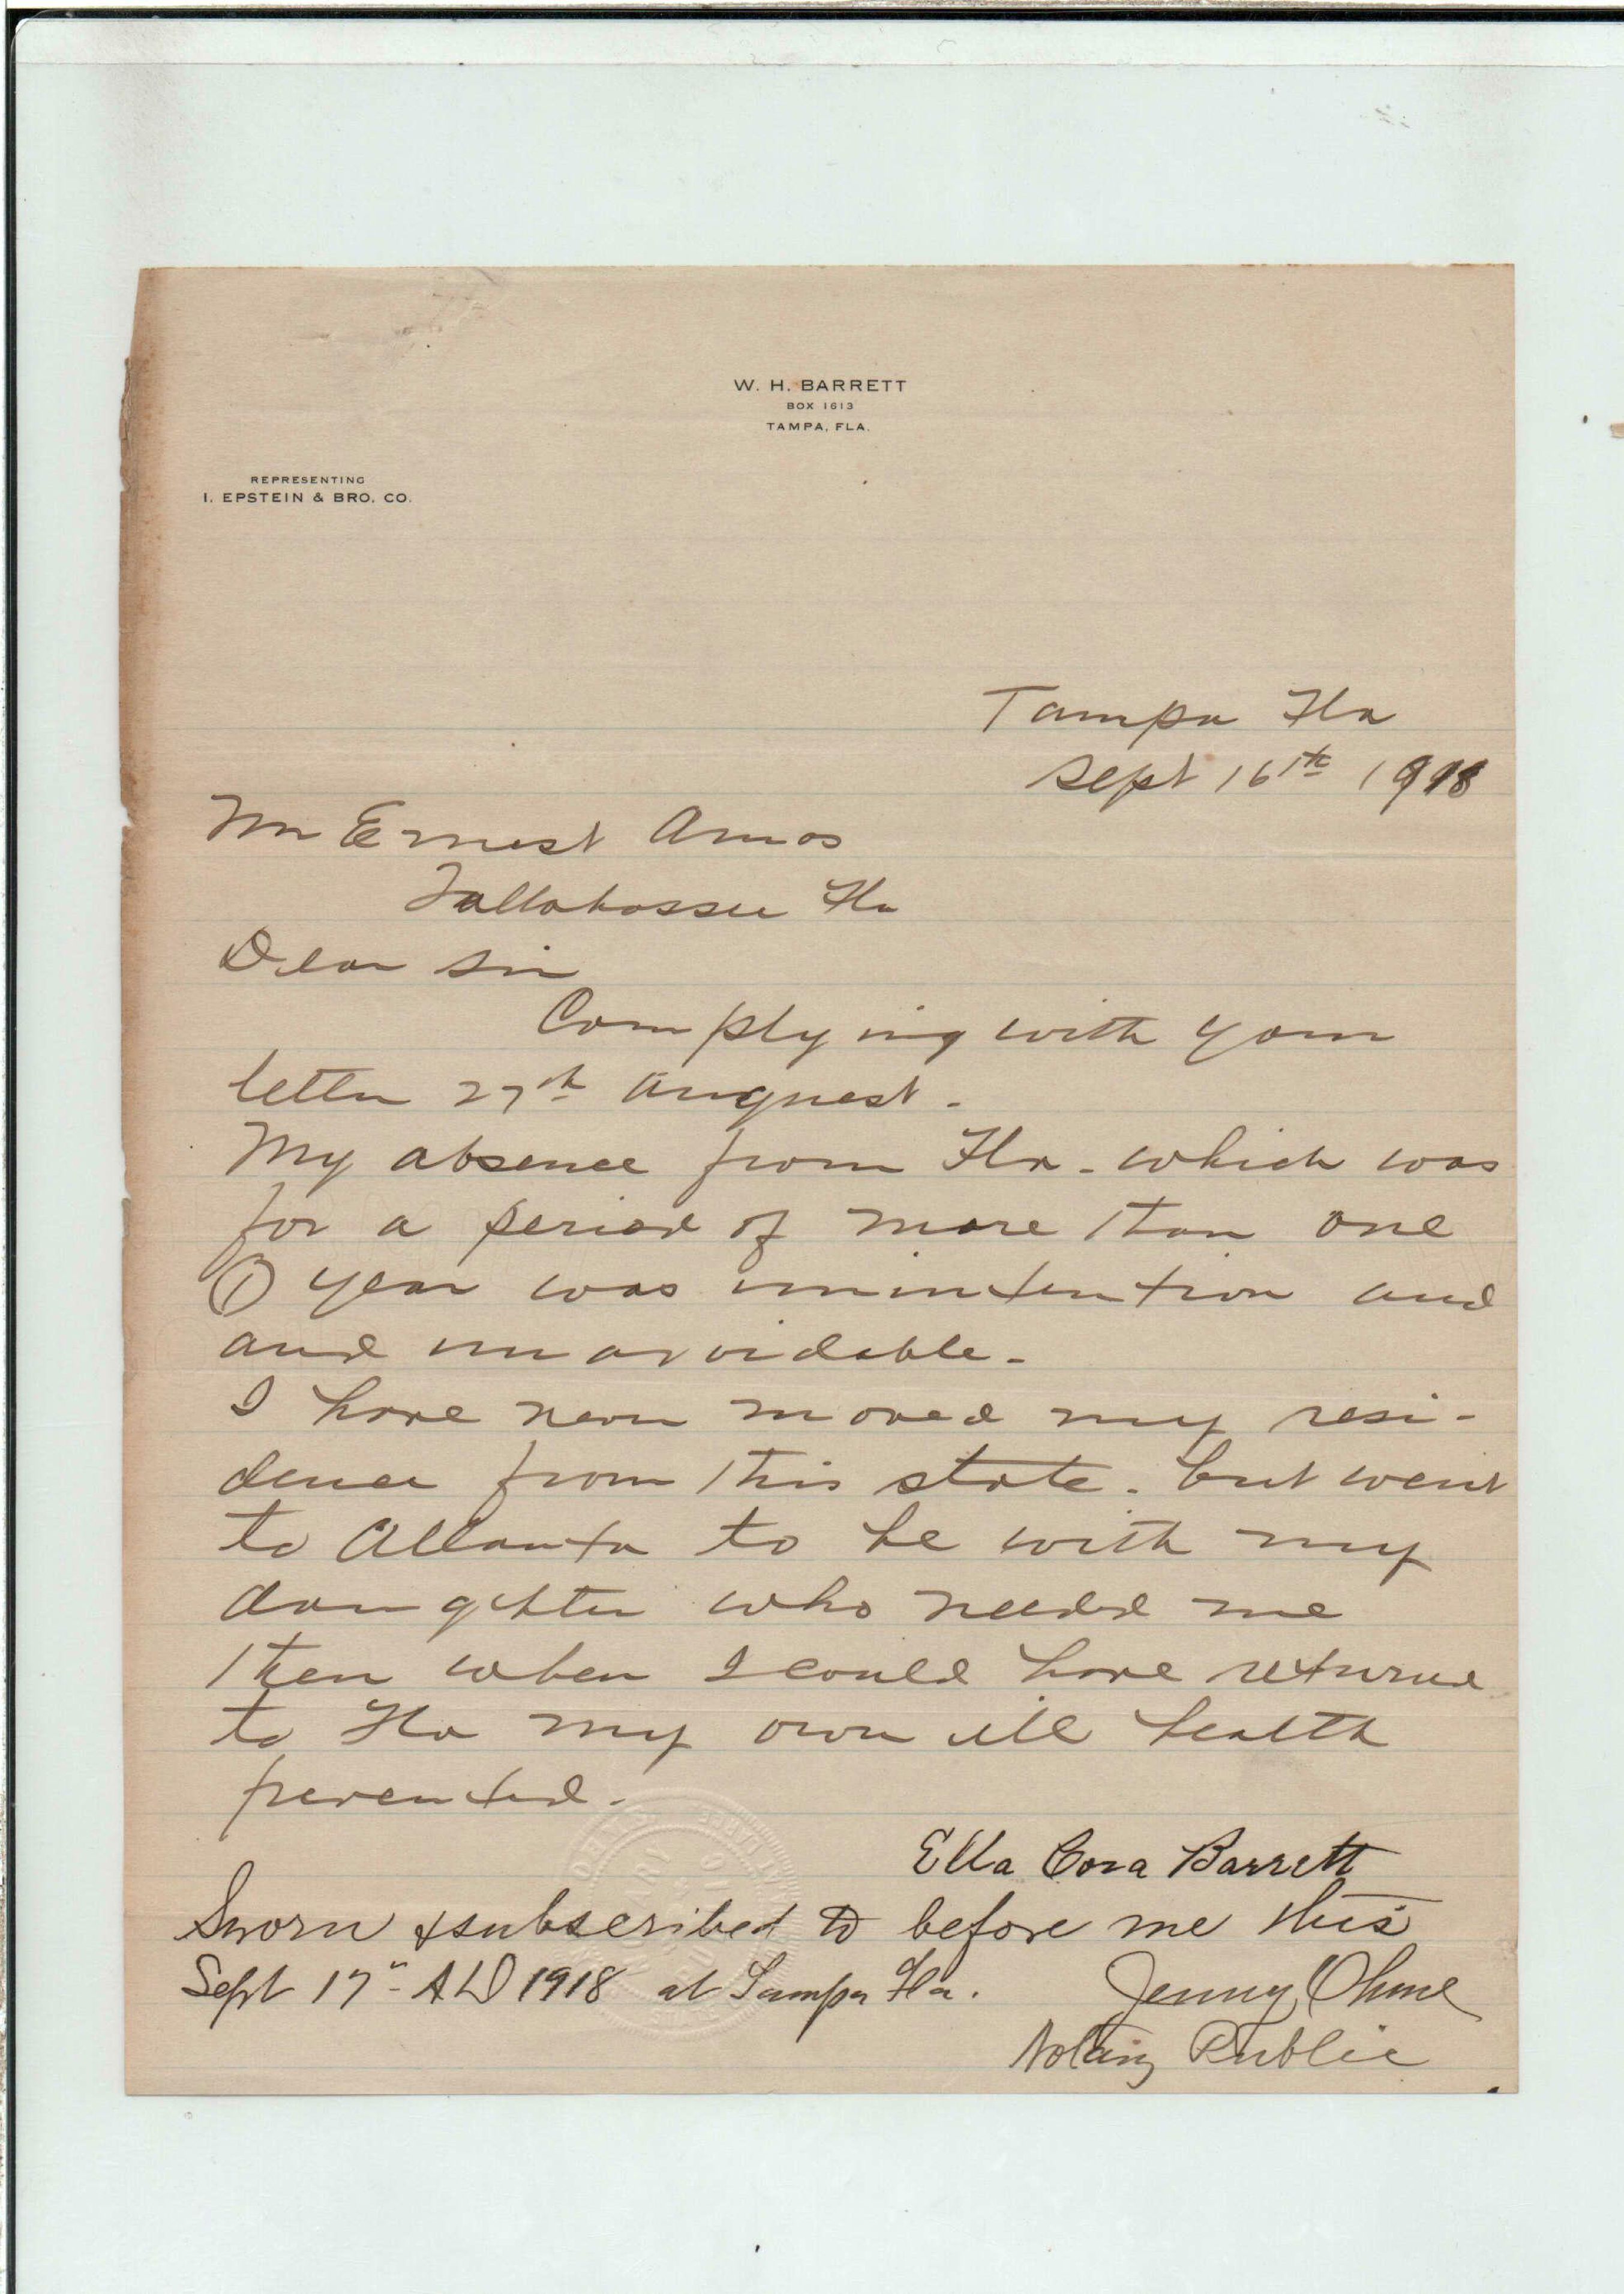 W. H. BARRETT
BOX 1613
TAMPA, FLA.
REPRESENTING
I. EPSTEIN & BRO. CO.
Tampa Fla
Sept 16th 1918
Mr Ernest Amos
Tallahassee Fla
Dear Sir
Complying with your
letter 27th August.
My absence from Fla. which was
for a period of more than one
(1) year was unintention and
and unavoidable.
I have never moved my resi-
dence from this state. but went
to Atlanta to be with my
daughter who needed me
then when I could have returned
to Fla my own ill health
prevented.
Ella Cora Barrett
Sworn & subscribed to before me this
Sept 17" AD 1918 at Tampa Fla.
Jenny
Notary Public